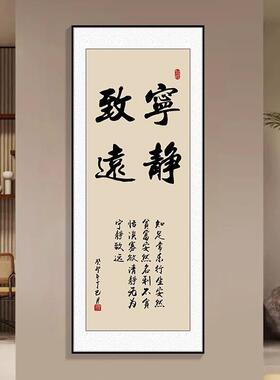 寧靜
致遠
知足常乐行安然
貧富安然名利不貪
恬淡寡欲清静无为
宁静致远
癸卯年